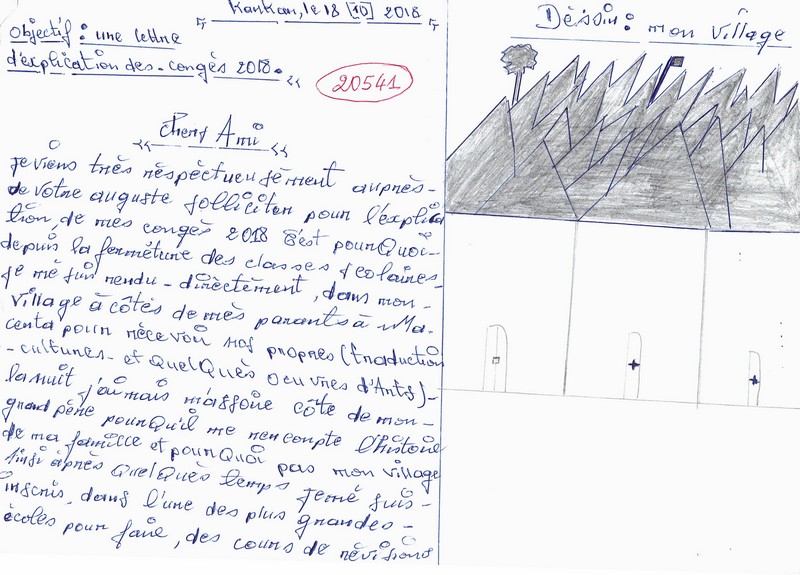 Kankan, le 18 [10] 2018
Objectif : une lettre
d'explication des-congés 2018.
20541
cherf Ami
Je viens très réspéctueusément auprès-
de votre auguste solliciter pour l'explica
tion, de mes congés 2018 c'est pourQuoi-
depuis la ferméture des classes scolaires-
je mé suis rendu-diréctement, dans mon-
village à côtés de mès parants à Ma-
centa pour récevoir nos propres (traduction
-cultures- et QuelQuès oeuvres d'Arts)-
la nuit j'ai mais m'assoire côte de mon-
grand père pourQu'il me rencompte l'histoire
de ma famille et pourQuoi pas mon village
insi après QuelQuès temps jemé suis-
inscris, dans l'une des plus grandes-
écoles pour faire, des cours de révisions
Déssin : mon village